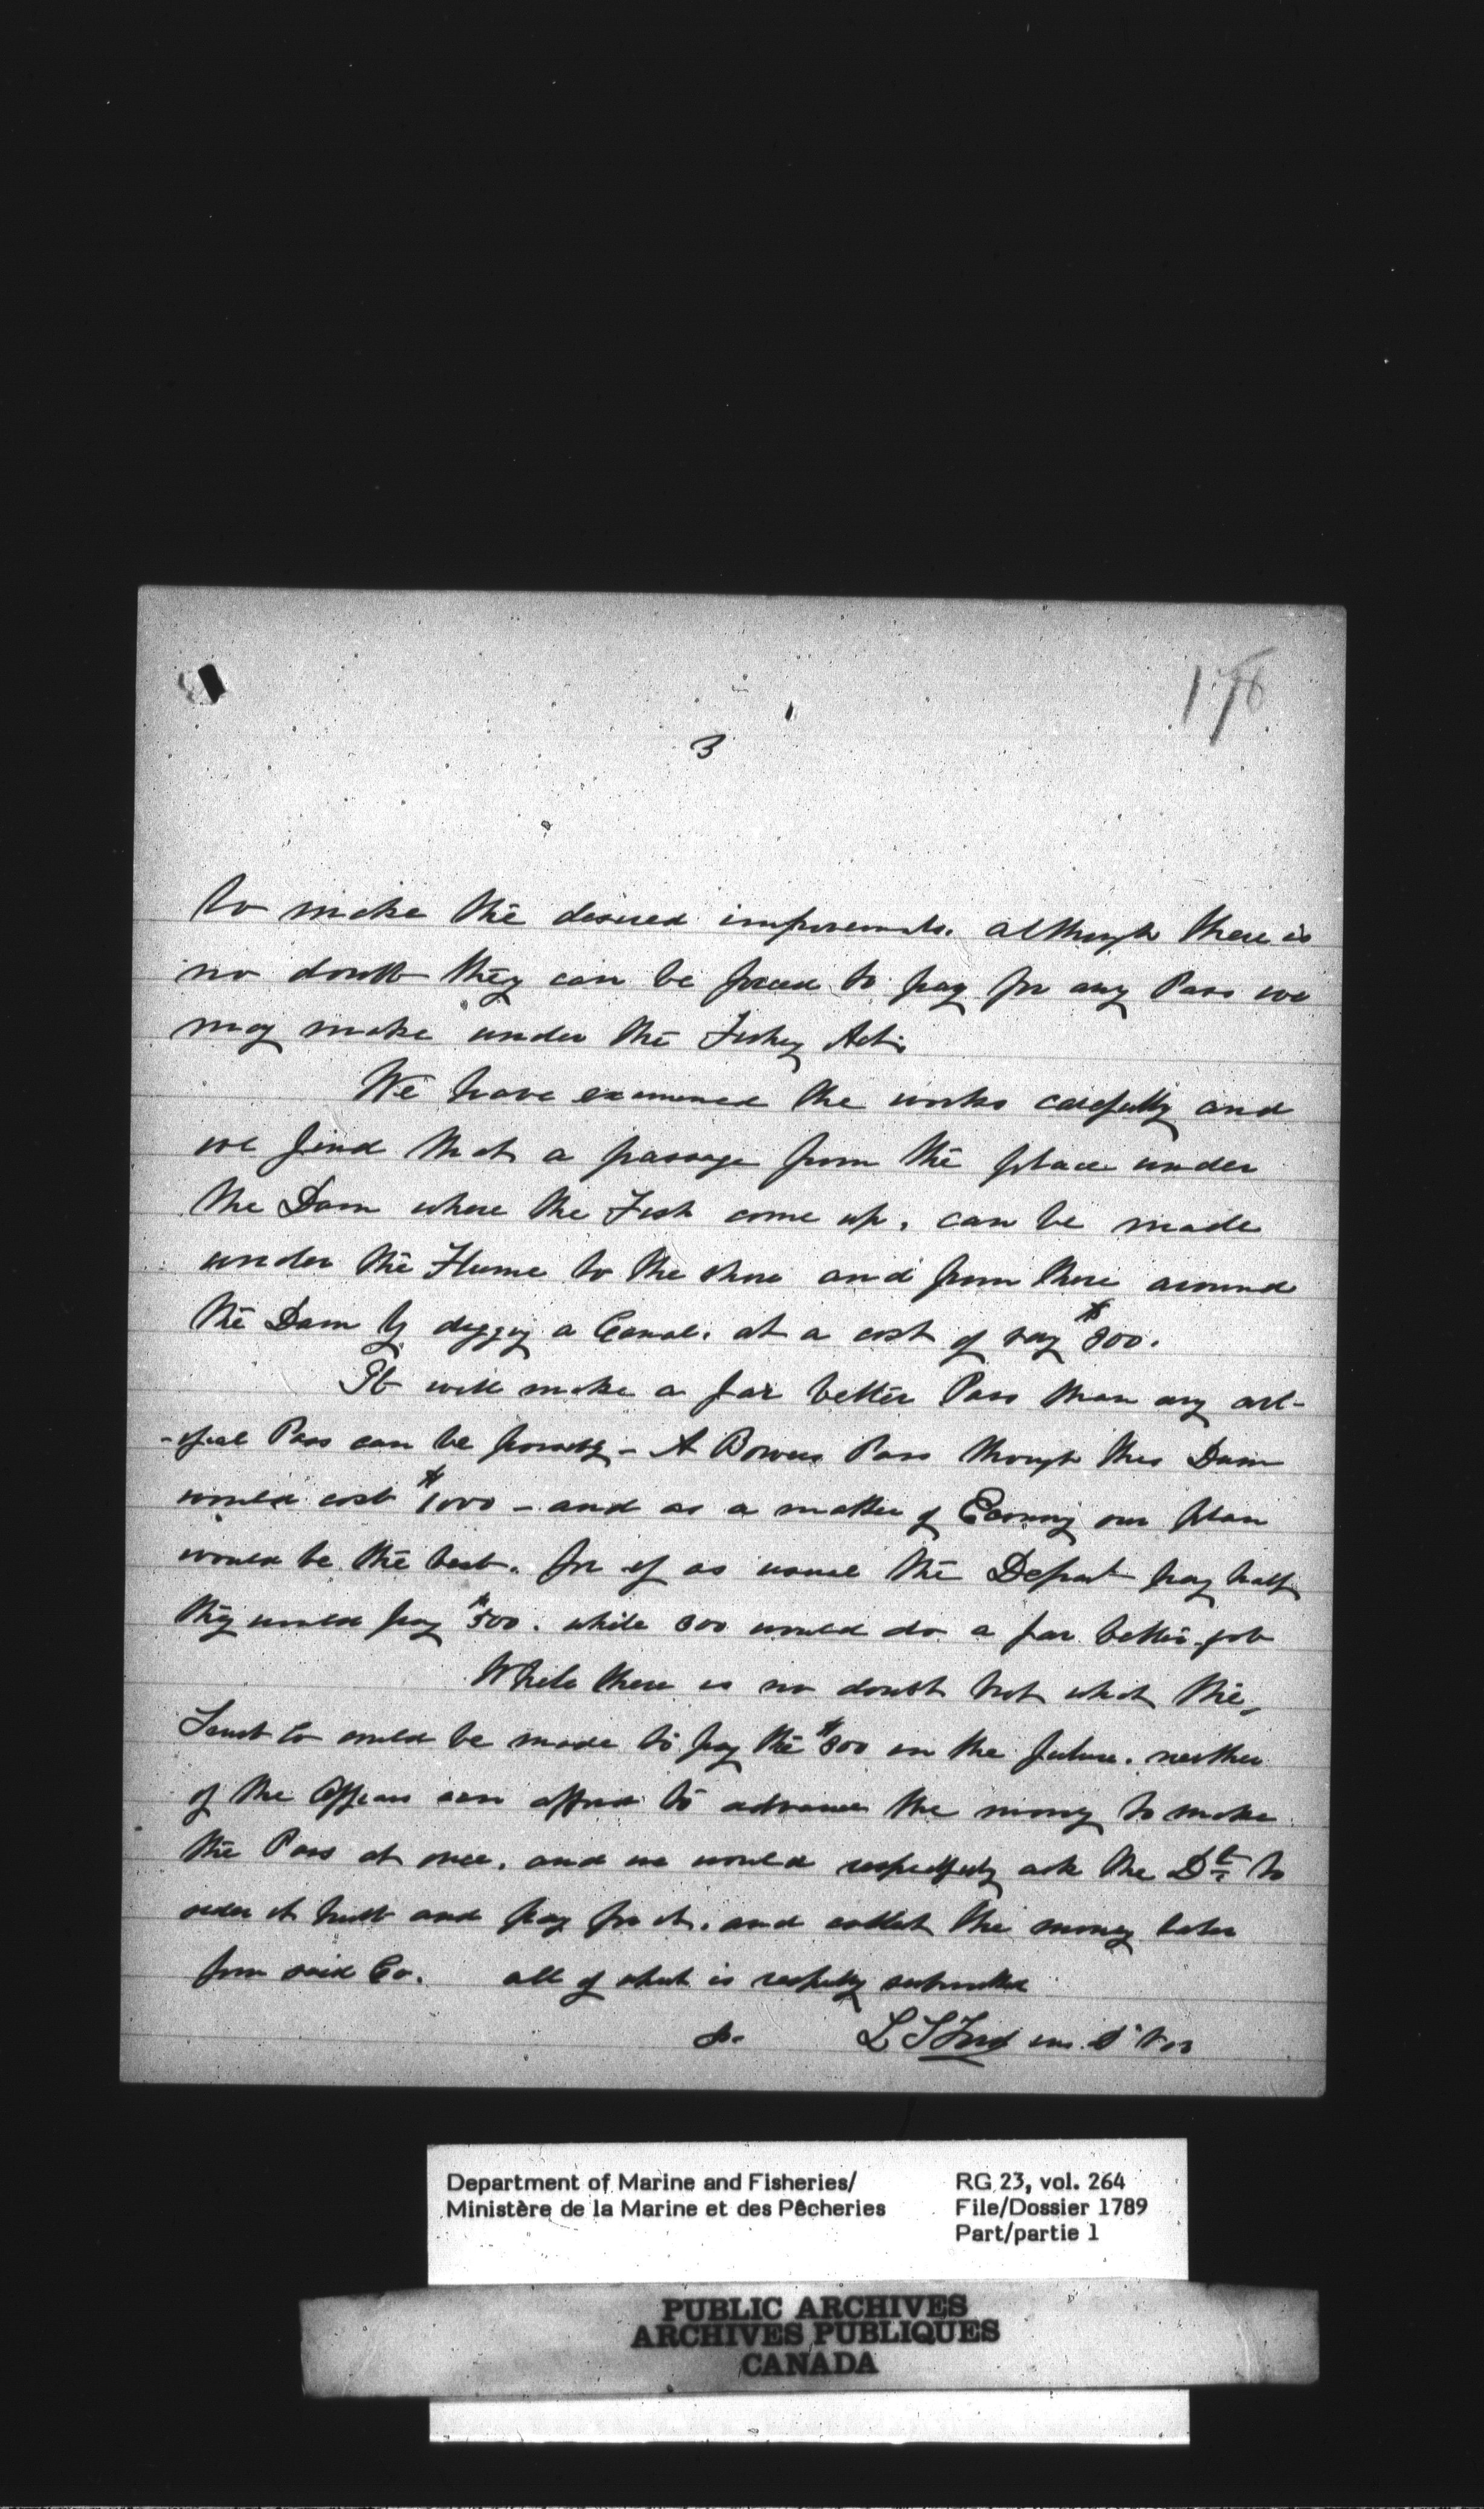 178
3
to make the desired improvements. although there is
no doubt they can be forced to pay for any Pass we
may make under the Fishery Act.
We have examined the works carefully and
we find that a passage from the place under
the Dam where the Fish come up, can be made
under the Flume to the shore and from there around
the Dam by digging a Canal. at a cost of say $300.
It will make a far better Pass than any art-
-ificial Pass can be possibly - A Bowers Pass through this Dam
would cost $1000 - and as a matter of Economy our plan
would be the best. for if as usual the Depart pay half
they would pay $500. while 300 would do a far better job
While there is no doubt but what the
Co could be made to pay the $300 in the future. neither
of the Officers can afford to advance the money to make
the Pass at once. and we would respectfully ask the Dt to
order it built and pay for it. and collect the money later
from said Co. all of which is respectfully submitted
L S Ford
Department of Marine and Fisheries/
Ministère de la Marine et des Pêcheries
RG 23, vol. 264
File/Dossier 1789
Part/partie 1
PUBLIC ARCHIVES
ARCHIVES PUBLIQUES
CANADA